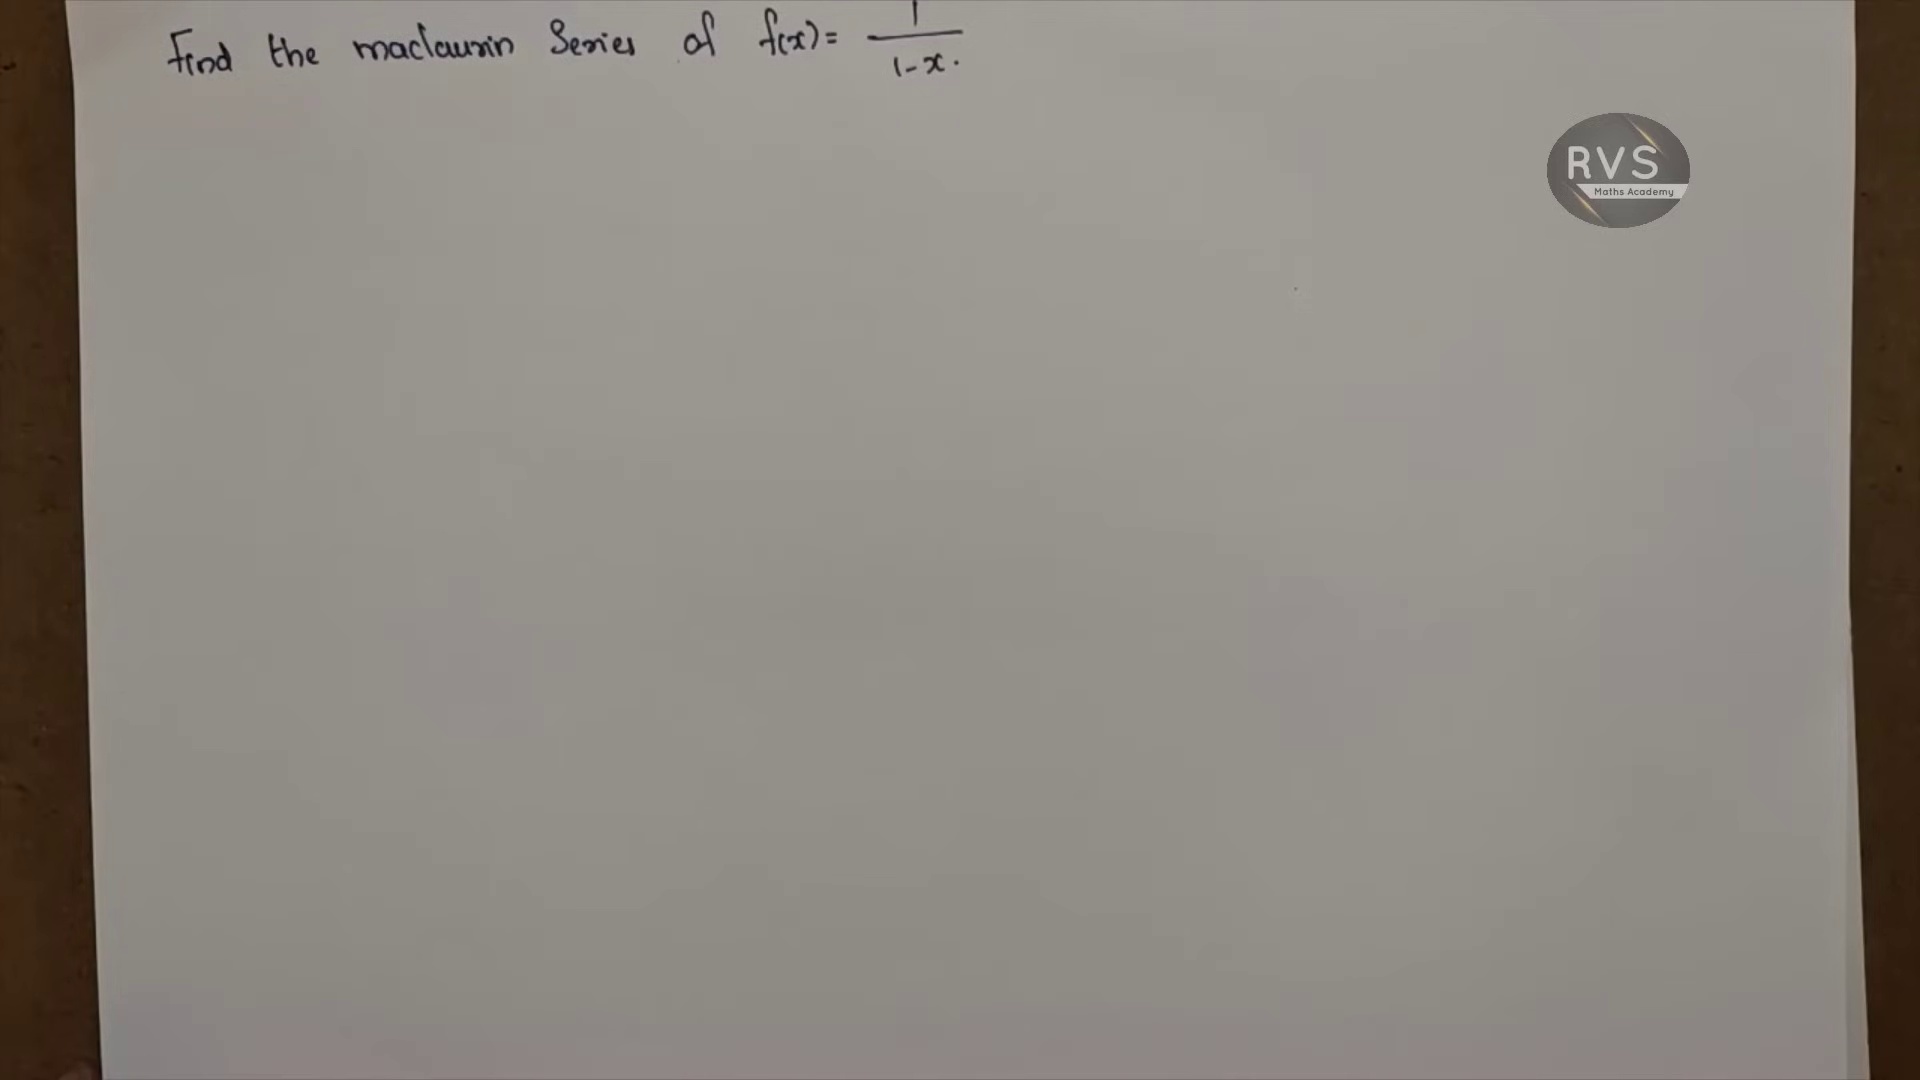 Find the maclaurin Series of f(x)= 1/1-x.
RVS
Maths Academy